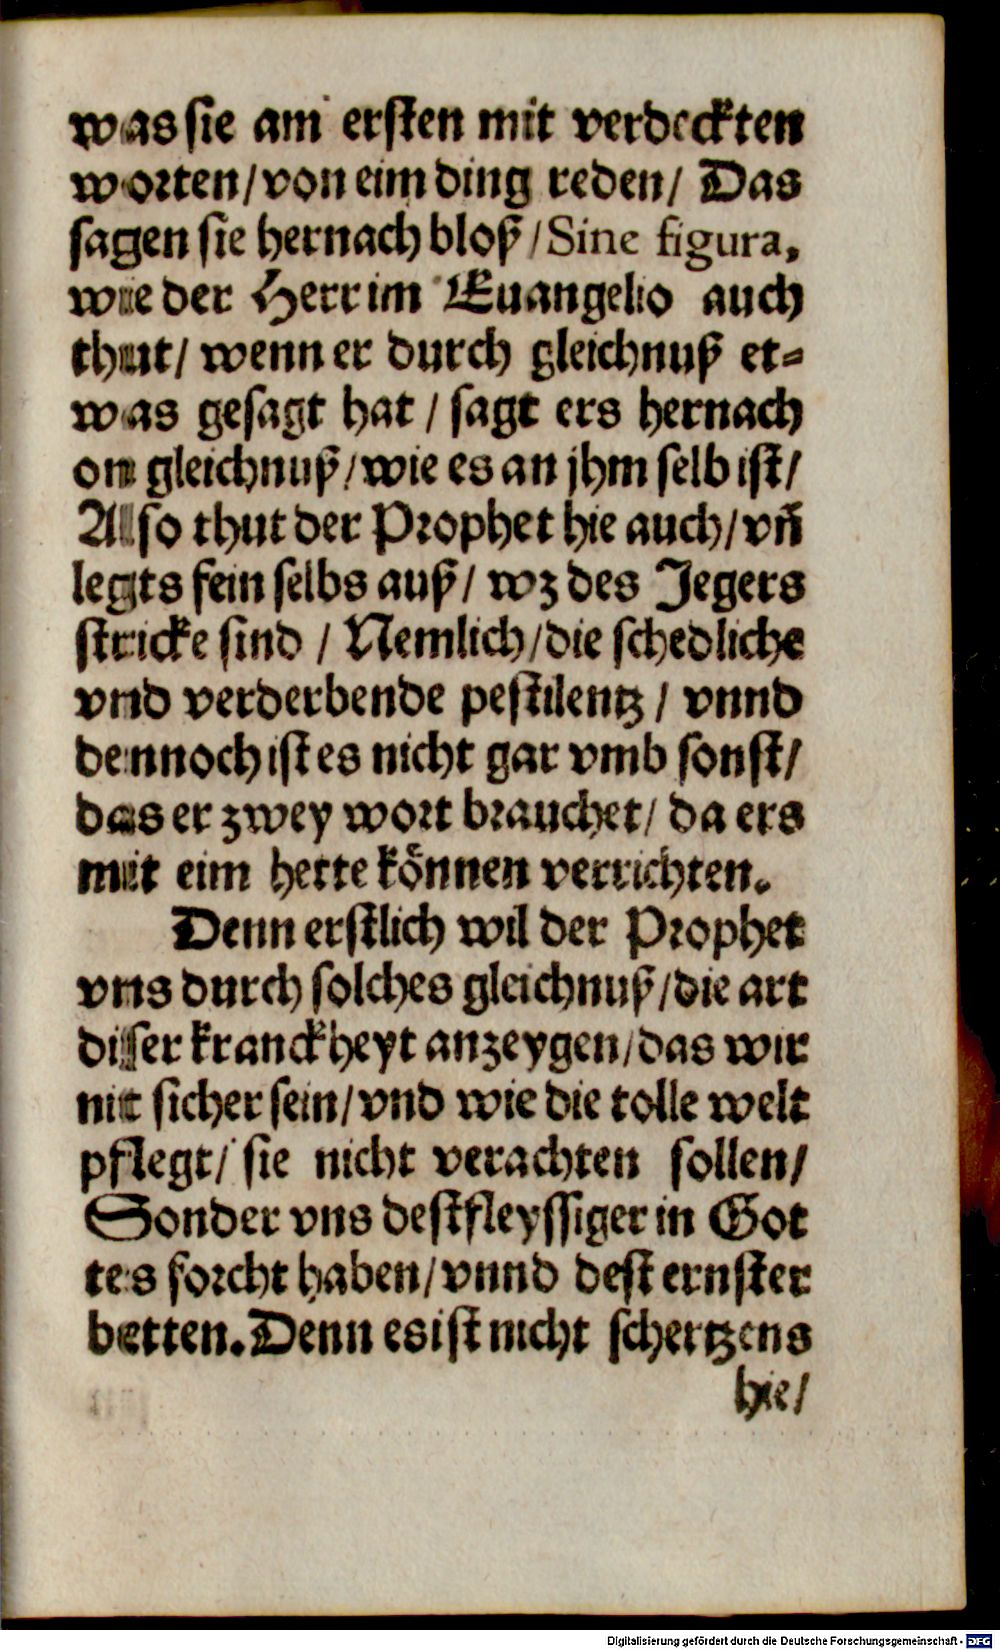 was sie am ersten mit verdeckten
worten / von eim ding reden / Das
sagen sie hernach bloß / Sine figura,
wie der Herr im Euangelio auch
thut / wenn er durch gleichnuß et=
was gesagt hat / sagt ers hernach
on gleichnuß / wie es an jhm selb ist /
Also thut der Prophet hie auch / vñ
legts fein selbs auß / wz des Jegers
stricke sind / Nemlich / die schedliche
vnd verderbende pestilentz / vnnd
dennoch ist es nicht gar vmb sonst /
das er zwey wort brauchet / da ers
mit eim hette können verrichten.
Denn erstlich wil der Prophet
vns durch solches gleichnuß / die art
diser kranckheyt anzeygen / das wir
nit sicher sein / vnd wie die tolle welt
pflegt / sie nicht verachten sollen /
Sonder vns destfleyssiger in Got
tes forcht haben / vnnd dest ernster
betten. Denn es ist nicht schertzens
hie /
Digitalisierung gefördert durch die Deutsche Forschungsgemeinschaft - DFG